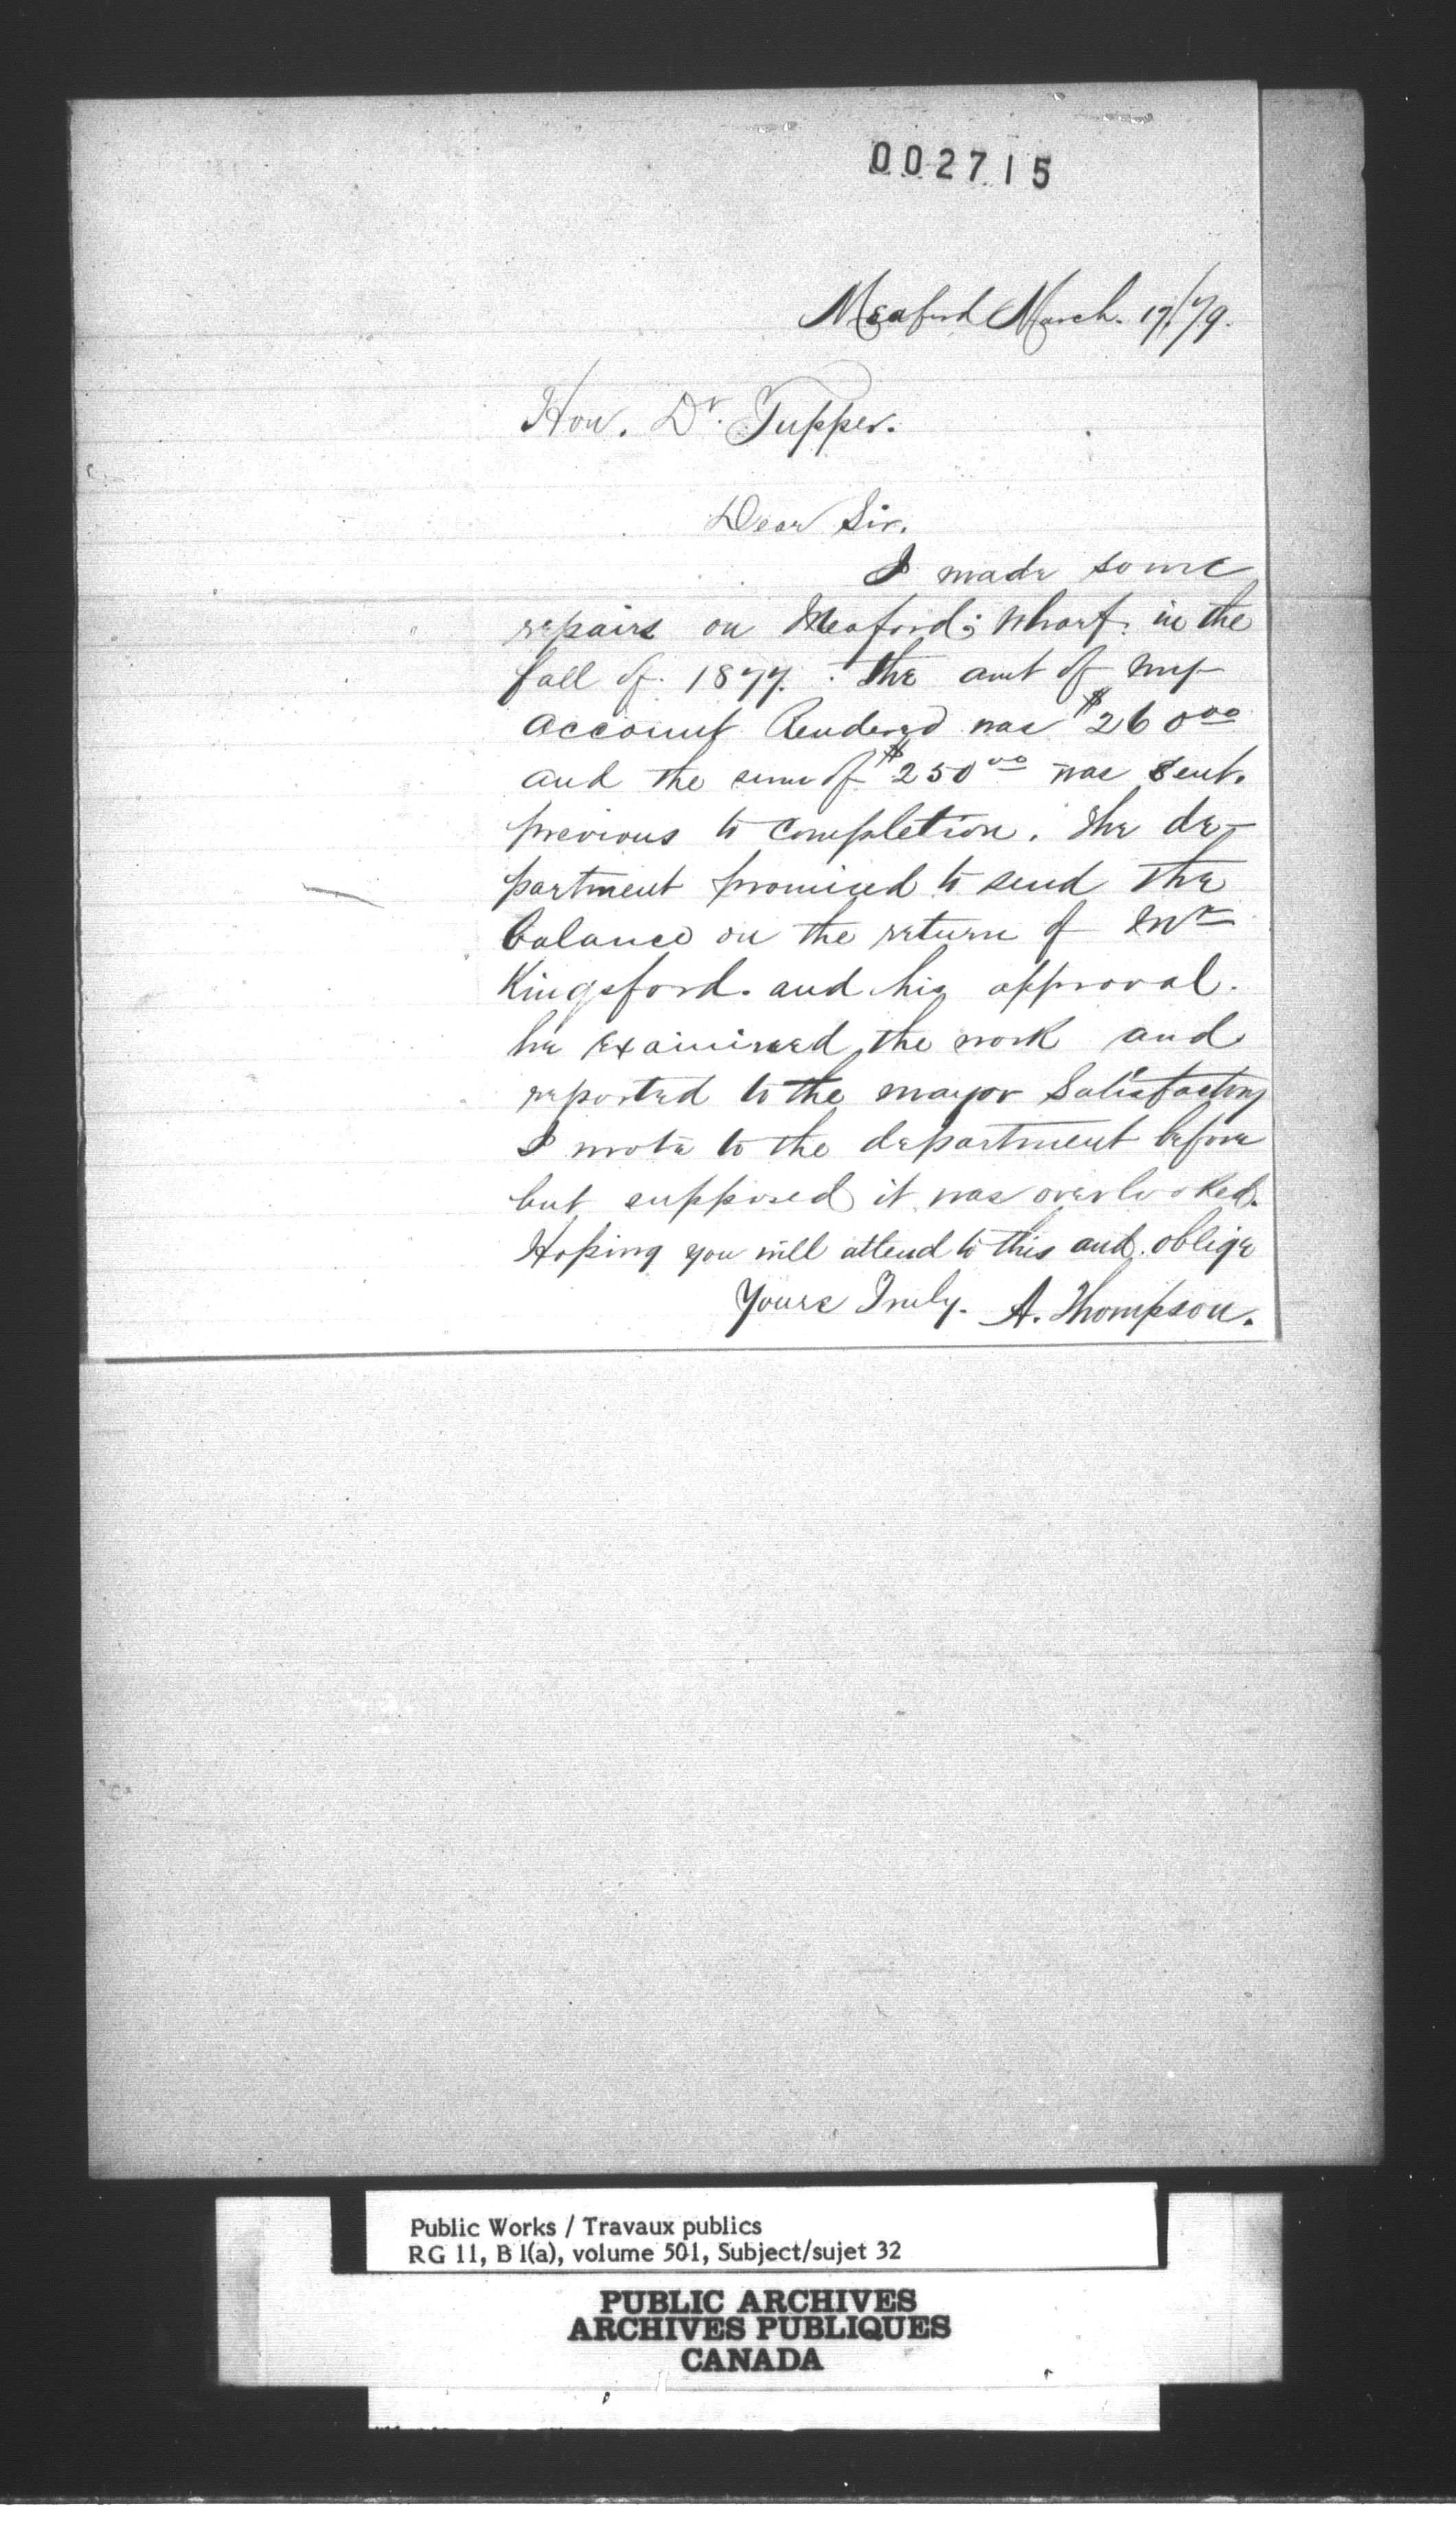 002715
Meaford March. 17/79.
Hon. Dr. Tupper.
Dear Sir.
I made some
repairs on Meaford; wharf. in the
fall of. 1877. The amt of my
account Rendered was $260 00
and the sum of $250 00 was sent.
previous to completion. The de-
partment promised to send the
balance on the return of Mr
Kingsford. and his approval.
he examined the work and
reported to the mayor Satisfactory
I wrote to the department before
but supposed it was overlooked.
Hoping you will attend to this and. oblige
Yours Truly. A. Thompson.
Public Works / Travaux publics
RG 11, B 1(a), volume 501, Subject/sujet 32
PUBLIC ARCHIVES
ARCHIVES PUBLIQUES
CANADA